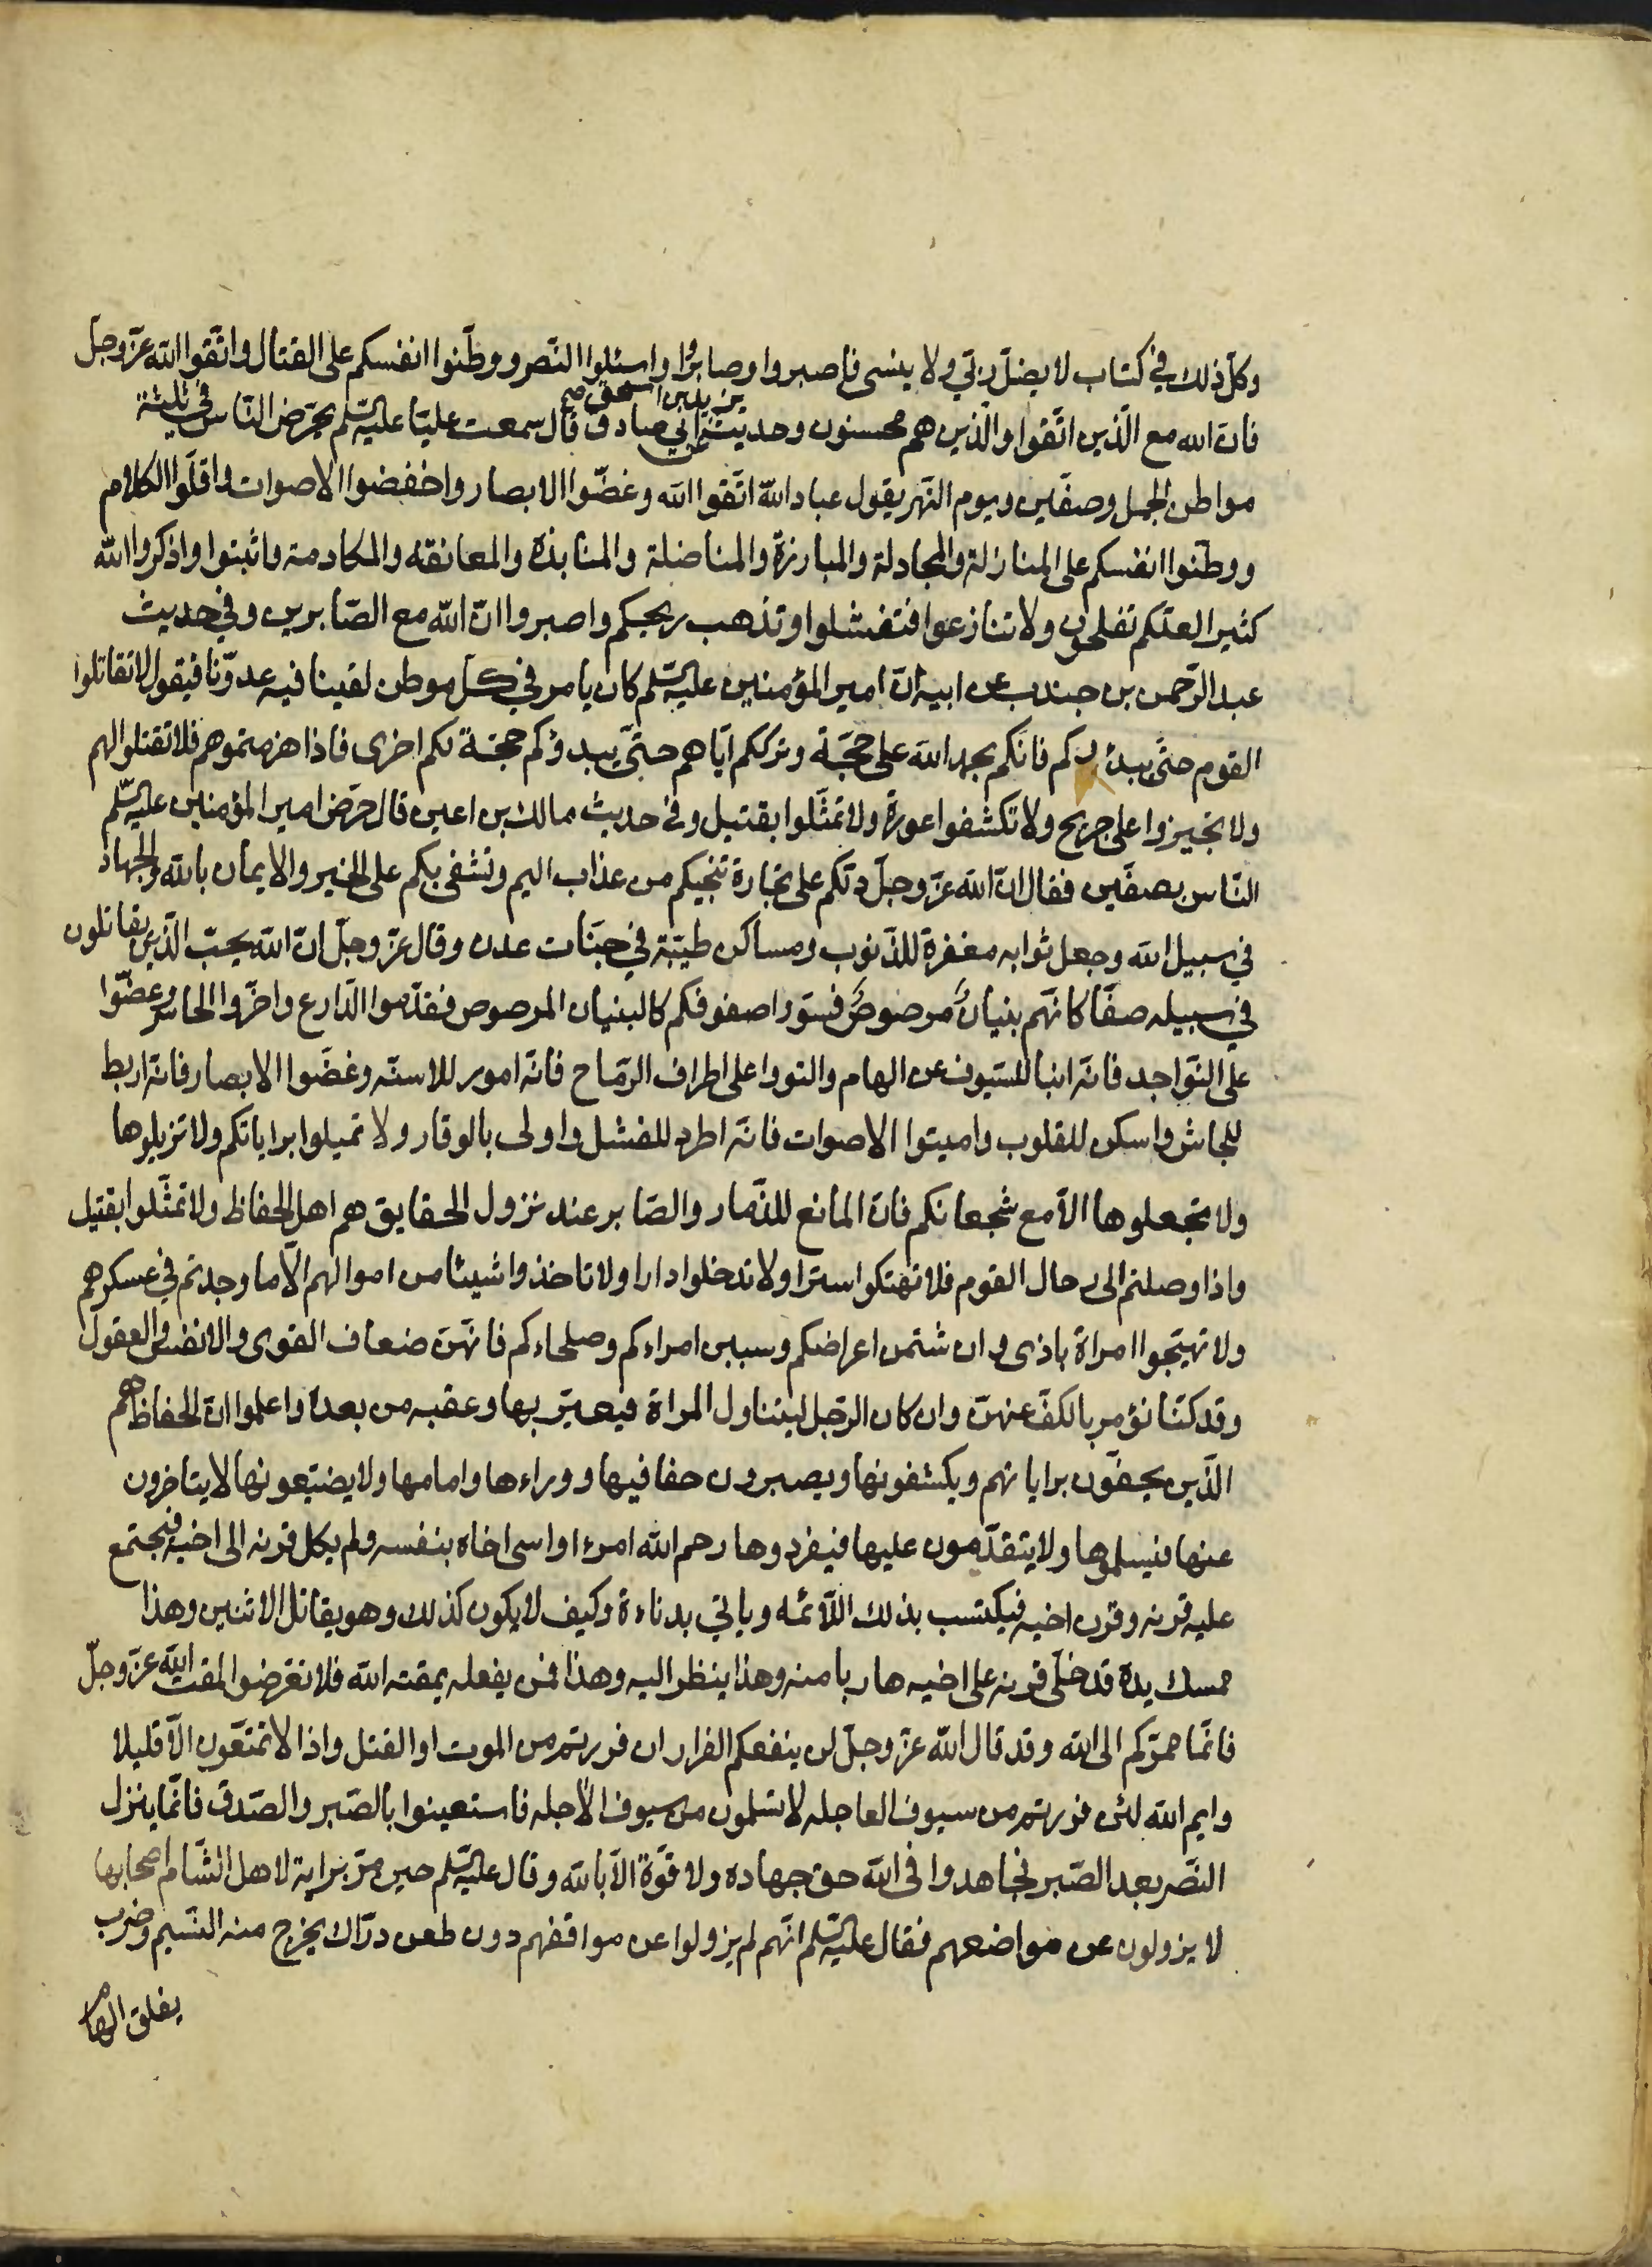 وكل ذلك في كتاب لا يضلّ ربّي ولا ينسى فاصبروا وصابروا واسئلوا النّصر ووطّنوا انفسكم على القتال واتّقوا الله عزّ وجلّ
يزيد بن اسحق صح
فانّ الله مع الّذين اتّقوا والّذين هم محسنون وحديث عن ابي صادق قال سمعت عليّا عليه السّلم يحرّض النّاس في ثلثة
مواطن الجمل وصفّين ويوم النّهر يقول عباد الله اتّقوا الله وغضّوا الابصار واخفضوا الاصوات واقلّوا الكلام
ووطّنوا انفسكم على المنازلة والمجادلة والمبارزة والمناضلة والمنابذة والمعانقه والمكادمة واثبتوا واذكروا الله
كثيرا لعلّكم تفلحون ولا تنازعوا فتفشلوا وتذهب ريحكم واصبروا انّ الله مع الصّابرين وفي حديث
عبد الرّحمن بن جندب عن ابيه انّ امير المؤمنين عليه السّلم كان يامر في كلّ موطن لقينا فيه عدوّنا فيقول لا تقاتلوا
القوم حتّى يبدؤكم فانّكم بحمد الله على حجّة وترككم ايّاهم حتّى يبدؤكم حجّة لكم اخرى فاذا هزمتموهم فلا تقتلوا لهم
ولا تجيزوا على جريح ولا تكشفوا عورة ولا تمثّلوا بقتيل وفي حديث مالك بن اعين قال حرّض امير المؤمنين عليه السّلم
النّاس بصفّين فقال انّ الله عزّ وجلّ دلّكم على تجارة تنجيكم من عذاب اليم وتشفى بكم على الخير والايمان بالله والجهاد
في سبيل الله وجعل ثوابه مغفرة للذّنوب ومساكن طيّبة في جنّات عدن وقال عزّ وجلّ انّ الله يحبّ الّذين يقاتلون
في سبيله صفّا كانّهم بنيانٌ مرصوصٌ فسوّوا صفوفكم كالبنيان المرصوص فقدّموا الدّارع واخّروا الحاسر وعضّوا
على النّواجد فانّه انبا للسّيوف عن الهام والتووا على اطراف الرّماح فانّه امور للاسنّه وغضّوا الابصار فانّه اربط
للجاش واسكن للقلوب واميتوا الاصوات فانّه اطرد للفشل واولى بالوقار ولا تميلوا براياتكم ولا تزيلوها
ولا تجعلوها الّا مع شجعانكم فانّ المانع للذّمار والصّابر عند نزول الحقايق هم اهل الحفاظ ولا تمثّلوا بقتيل
واذا وصلتم الى رحال القوم فلا تهتكوا سترا ولا تدخلوا دارا ولا تاخذوا شيئا من اموالهم الّا ما وجدتم في عسكرهم
ولا تهيّجوا امراة باذى وان شتمن اعراضكم وسببن امراءكم وصلحاءكم فانّهنّ ضعاف القوى والانفس والعقول
وقد كنّا نؤمر بالكفّ عنهنّ وان كان الرّجل ليتناول المراة فيعيّر بها وعقبه من بعده واعلموا انّ الحفاظ هم
الّذين يحفّون براياتهم ويكشفونها ويصبرون حفافيها ووراءها وامامها ولا يضيّعونها لا يتاخرون
عنها فيسلموها ولا يتقدّمون عليها فيفردوها رحم الله امرءا واسى اخاه بنفسه ولم يكل قرنه الى اخيه فيجتمع
عليه قرنه وقرن اخيه فيكتسب بذلك اللّائمه وياتي بدناءة وكيف لا يكون كذلك وهو يقاتل الاثنين وهذا
ممسك يده قد خلّى قرنه على اخيه هاربا منه وهذا ينظر اليه وهذا فمن يفعله يمقته الله فلا تعرّضوا لمقت الله عزّ وجلّ
فانّما ممرّكم الى الله وقد قال الله عزّ وجلّ لن ينفعكم الفرار ان فررتم من الموت او القتل واذا لا تمتّعون الّا قليلا
وايم الله لئن فررتم من سيوف العاجله لا تسلمون من سيوف الآجله فاستعينوا بالصّبر والصّدق فانّما ينزل
النّصر بعد الصّبر فجاهدوا في الله حق جهاده ولا قوّة الّا بالله وقال عليه السّلم حين مرّ براية لاهل الشّام اصحابها
لا يزولون عن مواضعهم فقال عليه السّلم انّهم لم يزولوا عن مواقفهم دون طعن درّاك يخرج منه النّسيم وضرب
يفلق الهام